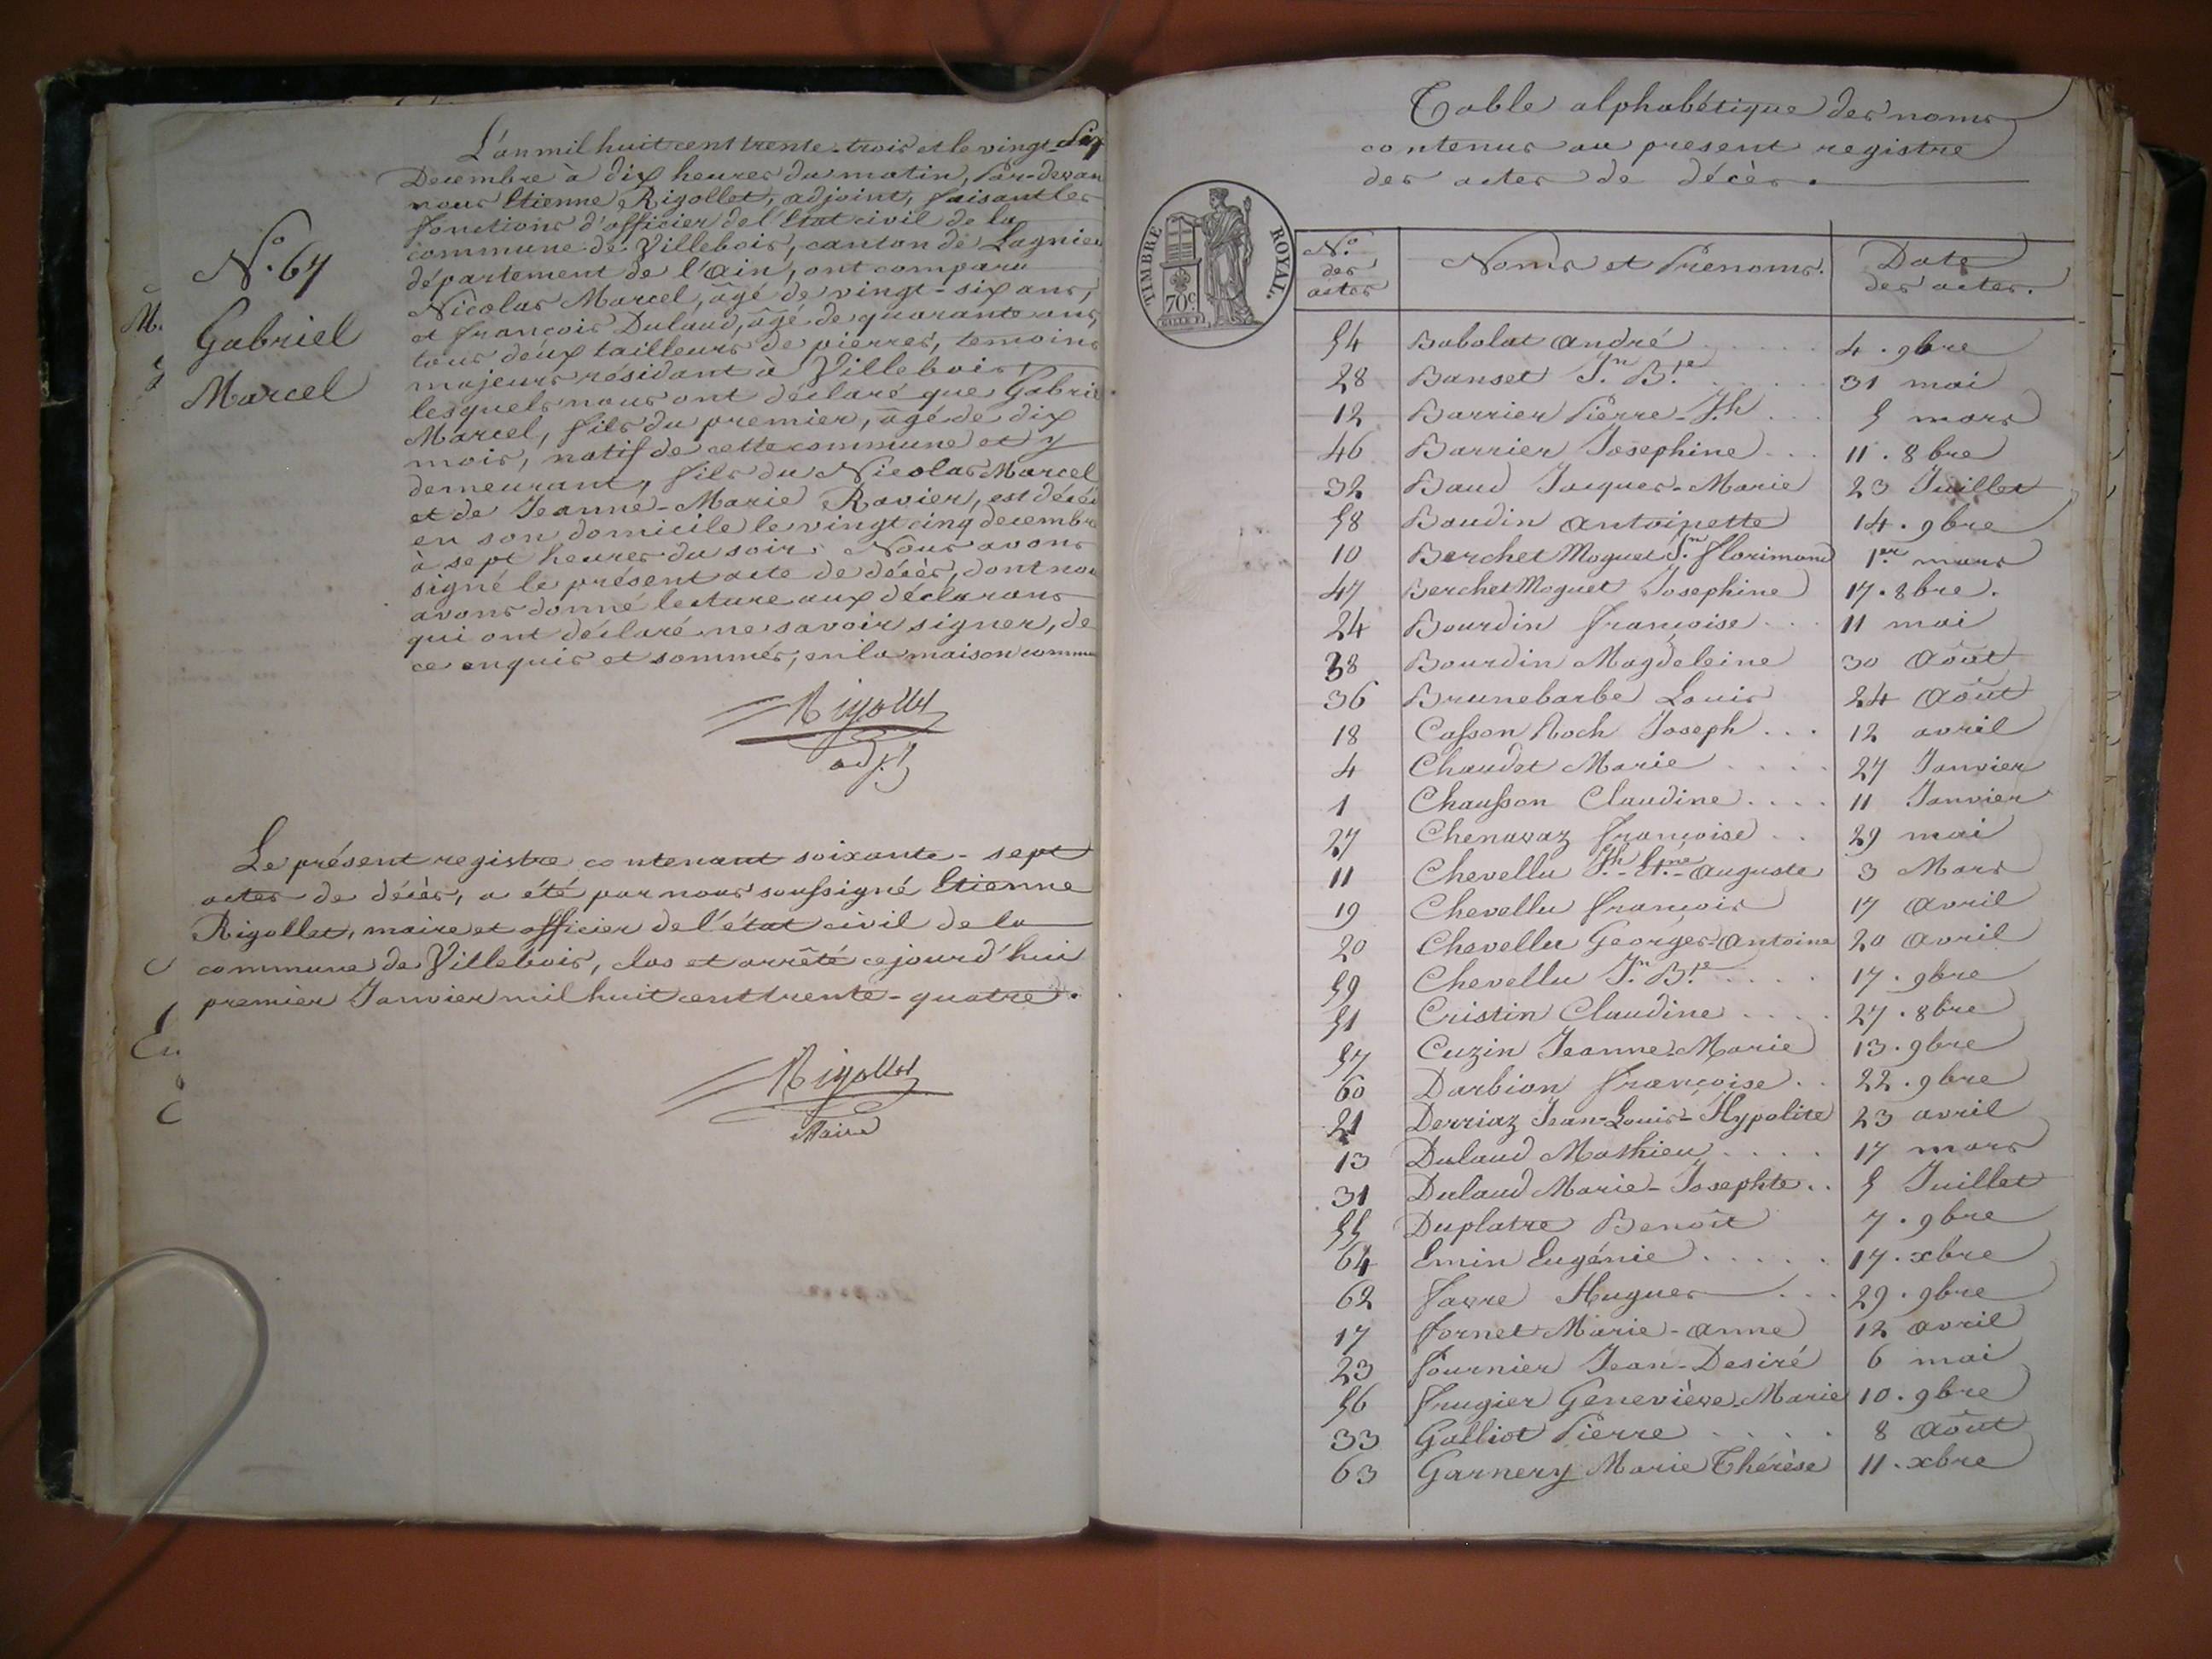 L'an mil huit cent trente-trois et le vingt-six
Decembre à dix heures du matin, Par-devan
nous Etienne Rigollet, adjoint, faisant les
fonctions d'officier de l'Etat civil de la
commune de Villebois, canton de Lagnieu
département de l'Ain, ont comparu
Nicolas Marcel, âgé de vingt-six ans,
et François Dulaud, âgé de quarante ans,
tous deux tailleurs de pierres, temoins
majeurs résidant à Villebois,
lesquels nous ont déclaré que Gabrie
Marcel, fils du premier, âgé de dix
mois, natif de cette commune et y
demeurant, fils du Nicolas Marcel
et de Jeanne-Marie Ravier, est décéd
en son domicile le vingt cinq decembre
à sept heures du soir. Nous avons
signé le présent acte de décès, dont nou
avons donné lecture aux déclarans
qui ont déclaré ne savoir signer, de
ce enquis et sommés, en la maison commu
N.º 67
Gabriel
Marcel
Rigollet
adj.t
Le présent registre contenant soixante-sept
actes de décès, a été par nous soussigné Etienne
Rigollet, maire et officier de l'état civil de la
commune de Villebois, clos et arrêté cejourd'hui
premier Janvier mil huit cent trente-quatre.
Rigollet
Maire
Table alphabétique des noms
contenus au present registre
des actes de décès.
TIMBRE ROYAL.
70c.
N.º des actes Noms et Prenoms. Date des actes.
54 Babolat André 4. 9bre
28 Banset J.n B.te 31 mai
12 Barrier Pierre-J.h 5 mars
46 Barrier Josephine 11. 8bre
32 Baud Jacques-Marie 23 Juillet
58 Baudin Antoinette 14. 9bre
10 Berchet Moguet J.n Florimond 1.er mars
47 Berchet Moguet Josephine 17. 8bre.
24 Bourdin Françoise 11 mai
38 Bourdin Magdeleine 30 Août
36 Brunebarbe Louis 24 Août
18 Casson Roch Joseph 12 avril
4 Chaudet Marie 27 Janvier
1 Chausson Claudine 11 Janvier
27 Chenavaz Françoise 29 mai
11 Chevellu J.h-E.ne-Auguste 3 Mars
19 Chevellu François 17 Avril
20 Chevellu Georges-Antoine 20 Avril
59 Chevellu J.n B.te 17. 9bre
51 Cristin Claudine 27. 8bre
57 Cuzin Jeanne-Marie 13. 9bre
60 Darbion Françoise 22. 9bre
21 Derriaz Jean-Louis-Hypolite 23 avril
13 Dulaud Mathieu 17 mars
31 Dulaud Marie-Josephte 5 Juillet
55 Duplatre Benoît 7. 9bre
64 Emin Eugénie 17. xbre
62 Favre Hugues 29. 9bre
17 Fornet Marie-Anne 12 avril
23 Fournier Jean-Desiré 6 mai
56 Frugier Geneviève-Marie 10. 9bre
33 Galliot Pierre 8 Août
63 Garnery Marie Thérèse 11. xbre